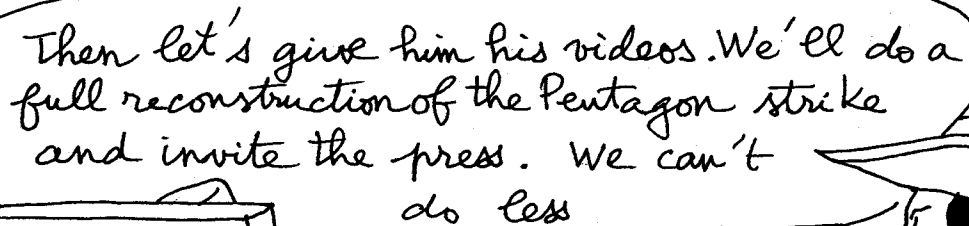 Then let's give him his videos. We'll do a
full reconstruction of the Pentagon strike
and invite the press. We can't
do less